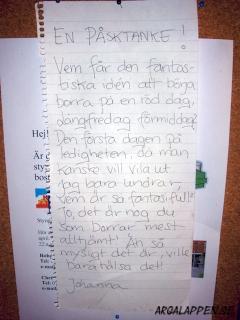 EN PÅSKTANKE!
Vem får den fantas-
tiska idén att börja
borra på en röd dag,
långfredag förmiddag?
Den första dagen på
ledigheten, då man
kanske vill vila ut
Jag bara undrar,
vem är så fantasifull?
Jo, det är nog du
som borrar mest
alltjämt! Än så
mysigt det är, ville
bara hälsa det!
Johanna
Hej!
Är d
sty
bost
ARGALAPPEN.SE